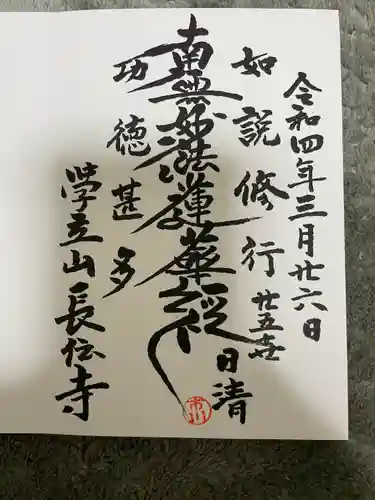 令和四年三月廿六日
如説修行
廿五世
日清
南無妙法蓮華経
功徳甚多
學立山長伝寺